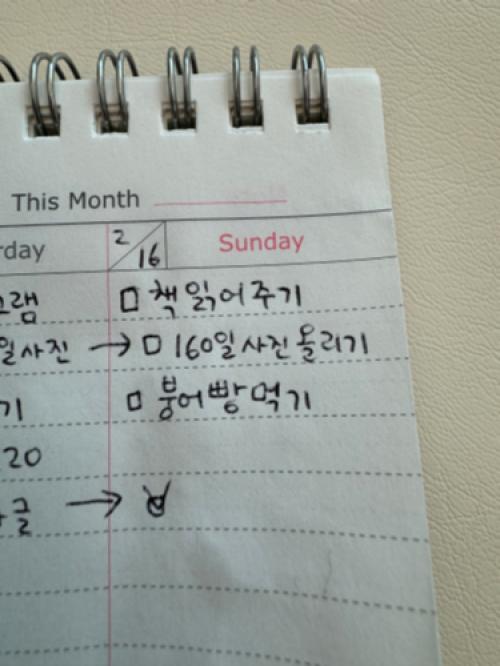 This Month
rday 2/16 Sunday
램 □ 책 읽어주기
일사진 → □ 160일 사진 올리기
기 □ 붕어빵 먹기
20
글 →